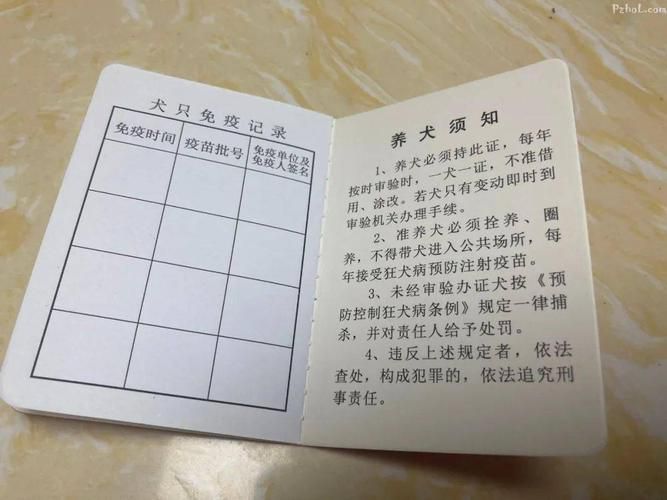 Pzhol.com
犬只免疫记录
免疫时间 疫苗批号 免疫单位及
免疫人签名
养犬须知
1、养犬必须持此证，每年
按时审验时，一犬一证，不准借
用、涂改。若犬只有变动即时到
审验机关办理手续。
2、准养犬必须拴养、圈
养，不得带犬进入公共场所，每
年接受狂犬病预防注射疫苗。
3、未经审验办证犬按《预
防控制狂犬病条例》规定一律捕
杀，并对责任人给予处罚。
4、违反上述规定者，依法
查处，构成犯罪的，依法追究刑
事责任。